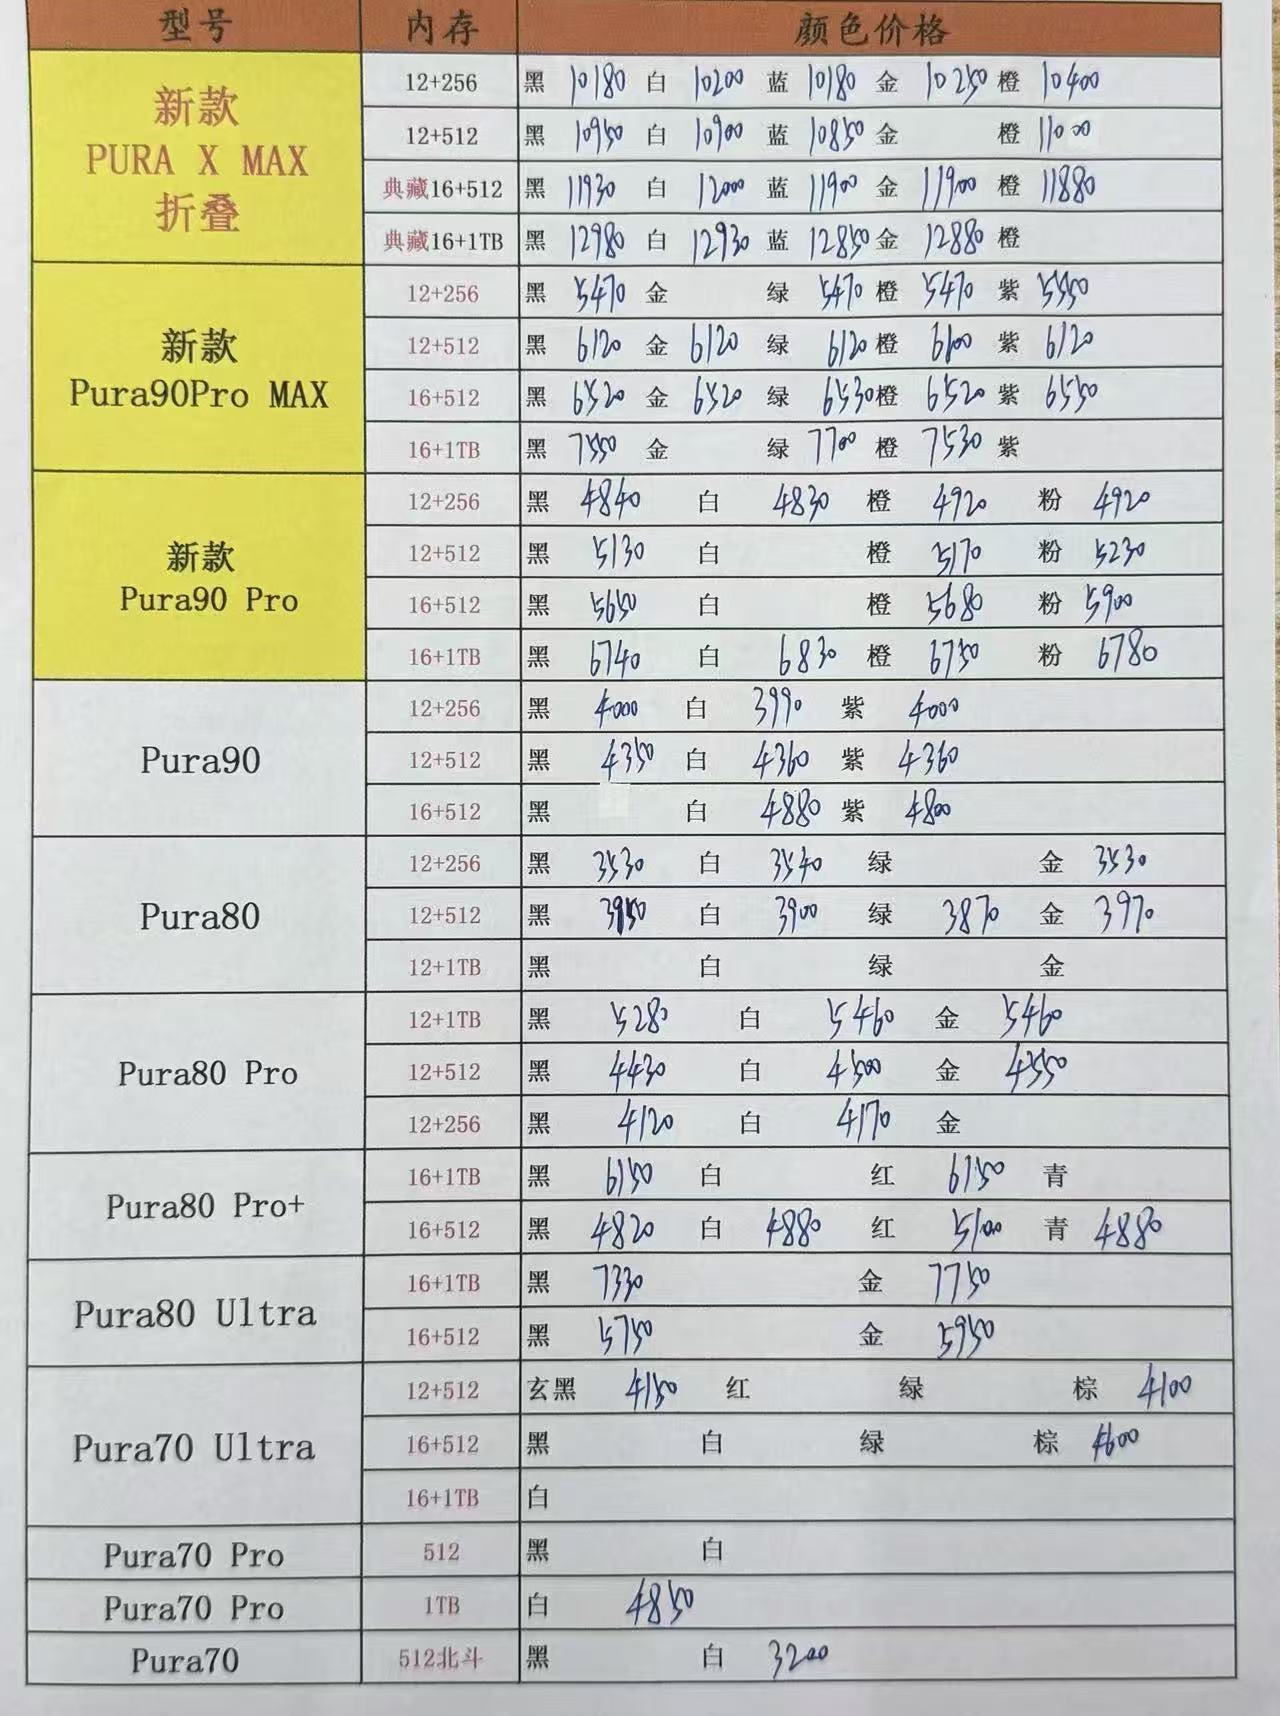 型号 内存 颜色价格
新款
PURA X MAX
折叠
12+256 黑 10180 白 10200 蓝 10180 金 10250 橙 10400
12+512 黑 10950 白 10900 蓝 10850 金 橙 11000
典藏16+512 黑 11930 白 12000 蓝 11900 金 11900 橙 11880
典藏16+1TB 黑 12980 白 12930 蓝 12850 金 12880 橙
新款
Pura90Pro MAX
12+256 黑 5470 金 绿 5470 橙 5470 紫 5550
12+512 黑 6120 金 6120 绿 6120 橙 6100 紫 6120
16+512 黑 6520 金 6520 绿 6530 橙 6520 紫 6550
16+1TB 黑 7550 金 绿 7700 橙 7530 紫
新款
Pura90 Pro
12+256 黑 4840 白 4830 橙 4920 粉 4920
12+512 黑 5130 白 橙 5170 粉 5230
16+512 黑 5650 白 橙 5680 粉 5900
16+1TB 黑 6740 白 6830 橙 6750 粉 6780
Pura90
12+256 黑 4000 白 3990 紫 4000
12+512 黑 4350 白 4360 紫 4360
16+512 黑 白 4880 紫 4800
Pura80
12+256 黑 3530 白 3540 绿 金 3530
12+512 黑 白 3900 绿 3870 金 3970
12+1TB 黑 白 绿 金
Pura80 Pro
12+1TB 黑 5280 白 5460 金 5460
12+512 黑 4430 白 4500 金 4550
12+256 黑 4120 白 4170 金
Pura80 Pro+
16+1TB 黑 6150 白 红 6150 青
16+512 黑 4820 白 4880 红 5100 青 4880
Pura80 Ultra
16+1TB 黑 7330 金 7750
16+512 黑 5750 金 5950
Pura70 Ultra
12+512 玄黑 4150 红 绿 棕 4100
16+512 黑 白 绿 棕 4600
16+1TB 白
Pura70 Pro 512 黑 白
Pura70 Pro 1TB 白 4850
Pura70 512北斗 黑 白 3200